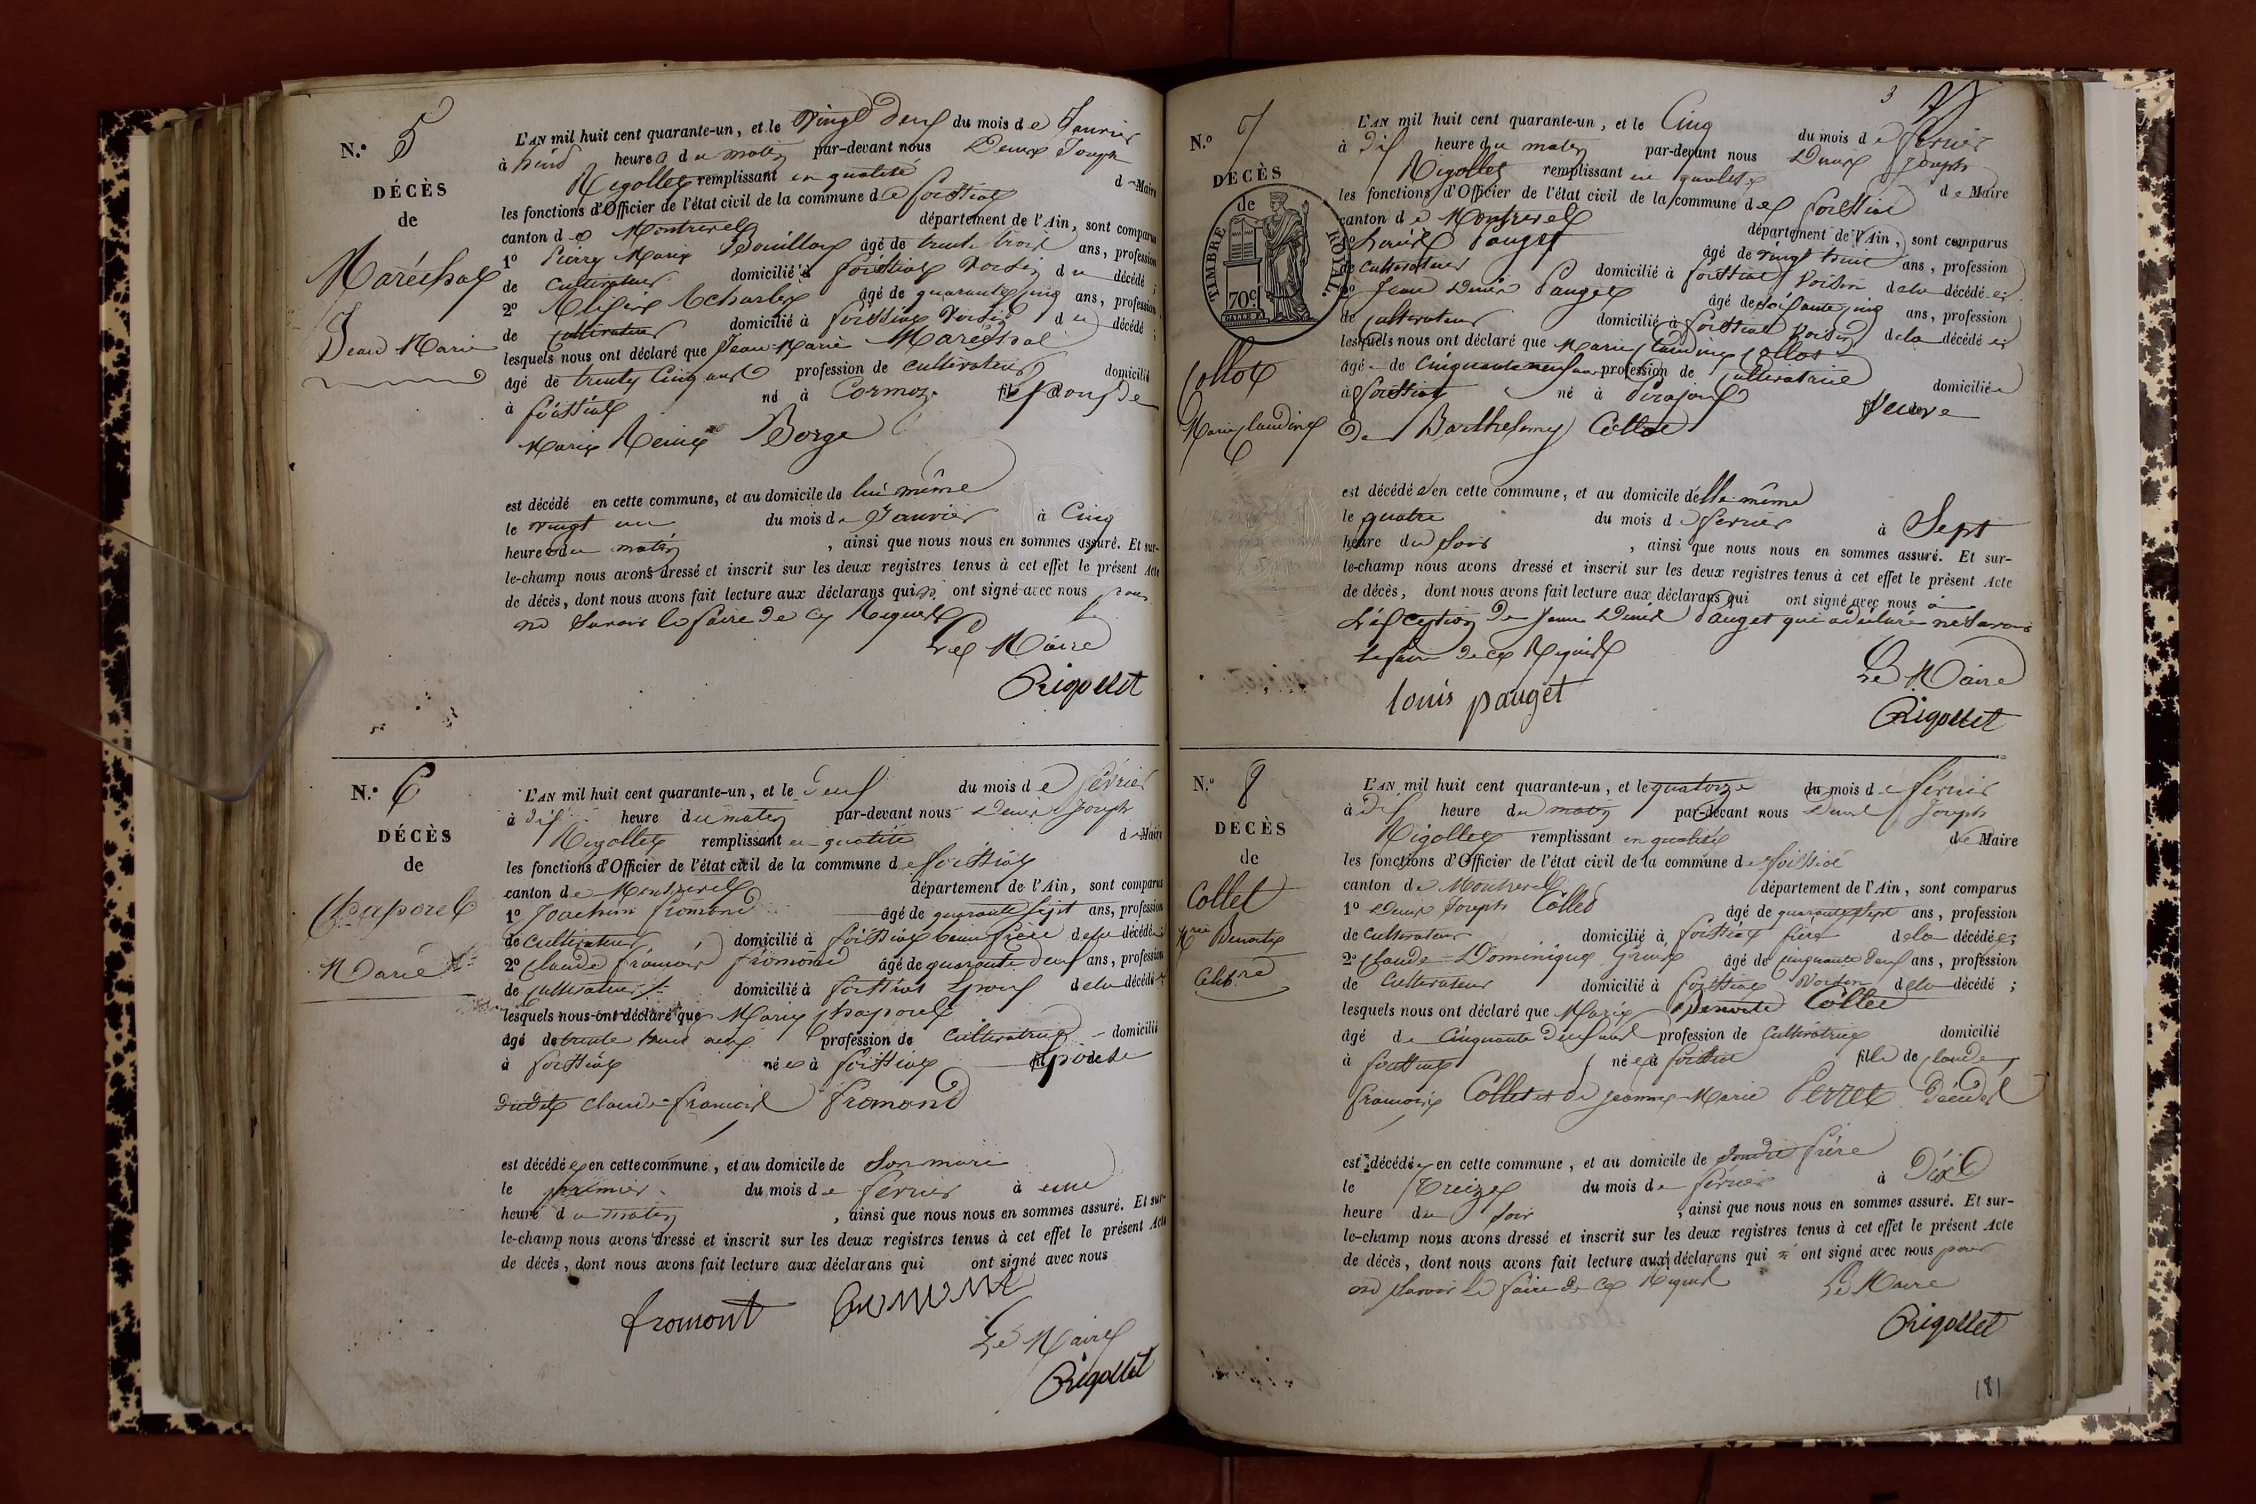 N.º 5
DÉCÈS
de
Maréchal
Jean Marie
L'AN mil huit cent quarante-un, et le vingt deux du mois de Janvier
à huit heures du matin par-devant nous Denis Joseph
Rigollet remplissant en qualité de Maire
les fonctions d'Officier de l'état civil de la commune de foissiat
canton de Montrevel département de l'Ain, sont comparus
1º Pierre Marie Bouillon âgé de trente trois ans, profession
de cultivateur domicilié à foissiat voisin du décédé ;
2º âgé de quarante cinq ans, profession
de cultivateur domicilié à foissiat voisin du décédé ;
lesquels nous ont déclaré que Jean-Marie Maréchal
âgé de trente cinq ans profession de cultivateur domicilié
à foissiat né à Cormoz. Epoux de
Marie Reine Borge
est décédé en cette commune, et au domicile de lui même
le vingt un du mois de Janvier à Cinq
heures du matin , ainsi que nous nous en sommes assuré. Et sur-
le-champ nous avons dressé et inscrit sur les deux registres tenus à cet effet le présent Acte
de décès, dont nous avons fait lecture aux déclarans qui n' ont signé avec nous pour
ne savoir le faire de ce Requis
Le Maire
Rigollet
N.º 6
DÉCÈS
de
Chaporel
Marie
L'AN mil huit cent quarante-un, et le deux du mois de février
à dix heure du matin par-devant nous Denis Joseph
Rigollet remplissant en qualité de Maire
les fonctions d'Officier de l'état civil de la commune de foissiat
canton de Montrevel département de l'Ain, sont comparus
1º Joachim fromond âgé de quarante sept ans, profession
de cultivateur domicilié à foissiat beau frère de la décédée
2º Claude françois fromond âgé de quarante deux ans, profession
de cultivateur domicilié à foissiat Epoux de la décédée
lesquels nous ont déclaré que Marie Chaporel
âgé de trente huit ans profession de cultivatrice domicilié
à foissiat née à foissiat Epouse de
dudit Claude-françois fromond
est décédée en cette commune, et au domicile de Son mari
le premier du mois de fevrier à une
heure du matin , ainsi que nous nous en sommes assuré. Et sur-
le-champ nous avons dressé et inscrit sur les deux registres tenus à cet effet le présent Acte
de décès, dont nous avons fait lecture aux déclarans qui ont signé avec nous
fromont
Le Maire
Rigollet
3
N.º 7
DÉCÈS
de
TIMBRE ROYAL.
70c
Collot
Marie Claudine
L'AN mil huit cent quarante-un, et le Cinq du mois de février
à dix heure du matin par-devant nous Denis Joseph
Rigollet remplissant en qualité de Maire
les fonctions d'Officier de l'état civil de la commune de foissiat
canton de Montrevel département de l'Ain, sont comparus
1º Louis Pauget âgé de vingt huit ans, profession
de cultivateur domicilié à foissiat voisin de la décédée
2º Jean Denis Pauget âgé de soixante cinq ans, profession
de cultivateur domicilié à foissiat voisin de la décédée
lesquels nous ont déclaré que Marie Claudine Collot
âgé de Cinquante neuf ans profession de cultivatrice domiciliée
à foissiat né à Pirajoux Veuve
de Barthelemy Collot
est décédée en cette commune, et au domicile d'elle même
le quatre du mois de fevrier à Sept
heure du soir , ainsi que nous nous en sommes assuré. Et sur-
le-champ nous avons dressé et inscrit sur les deux registres tenus à cet effet le présent Acte
de décès, dont nous avons fait lecture aux déclarans qui ont signé avec nous à
L'exception de Jean Denis Pauget qui a déclaré ne savoir
le faire de ce Requis
louis pauget
Le Maire
Rigollet
N.º 8
DÉCÈS
de
Collet
Mrie Benoite
Celibre
L'AN mil huit cent quarante-un, et le quatorze du mois de février
à dix heure du matin par-devant nous Denis Joseph
Rigollet remplissant en qualité de Maire
les fonctions d'Officier de l'état civil de la commune de foissiat
canton de Montrevel département de l'Ain, sont comparus
1º Denis Joseph Collet âgé de quarante sept ans, profession
de cultivateur domicilié à foissiat frère de la décédée;
2º Claude-Dominique âgé de cinquante deux ans, profession
de Cultivateur domicilié à foissiat voisin de la décédé ;
lesquels nous ont déclaré que Marie Benoite Collet
âgé de Cinquante deux ans profession de Cultivatrice domicilié
à foissiat née à foissiat fille de Claude
françois Collet et de Jeanne-Marie Perret Décédés
est décédée en cette commune, et au domicile de Sondit frère
le Treize du mois de février à Dix
heure du soir , ainsi que nous nous en sommes assuré. Et sur-
le-champ nous avons dressé et inscrit sur les deux registres tenus à cet effet le présent Acte
de décès, dont nous avons fait lecture aux déclarans qui n' ont signé avec nous pour
ne savoir le faire de ce Requis Le Maire
Rigollet
181